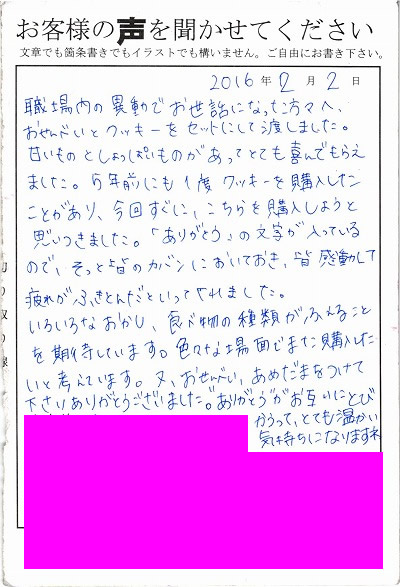 お客様の声を聞かせてください
文章でも箇条書きでもイラストでも構いません。ご自由にお書き下さい。
2016年2月2日
職場内の異動でお世話になった方々へ、
おせんべいとクッキーをセットにして渡しました。
甘いものとしょっぱいものがあってとても喜んでもらえ
ました。5年前にも1度クッキーを購入した
ことがあり、今回すぐに、こちらを購入しようと
思いつきました。「ありがとう」の文字が入っている
ので、そっと皆のカバンにおいておき、皆感動して
疲れがふきとんだといってくれました。
いろいろなおかし、食べ物の種類がふえること
を期待しています。色々な場面でまた購入した
いと考えています。又、おせんべい、あめだまをつけて
下さりありがとうございました。"ありがとう"がお互いにとび
かうって、とても温かい
気持ちになりますネ
切り取り線